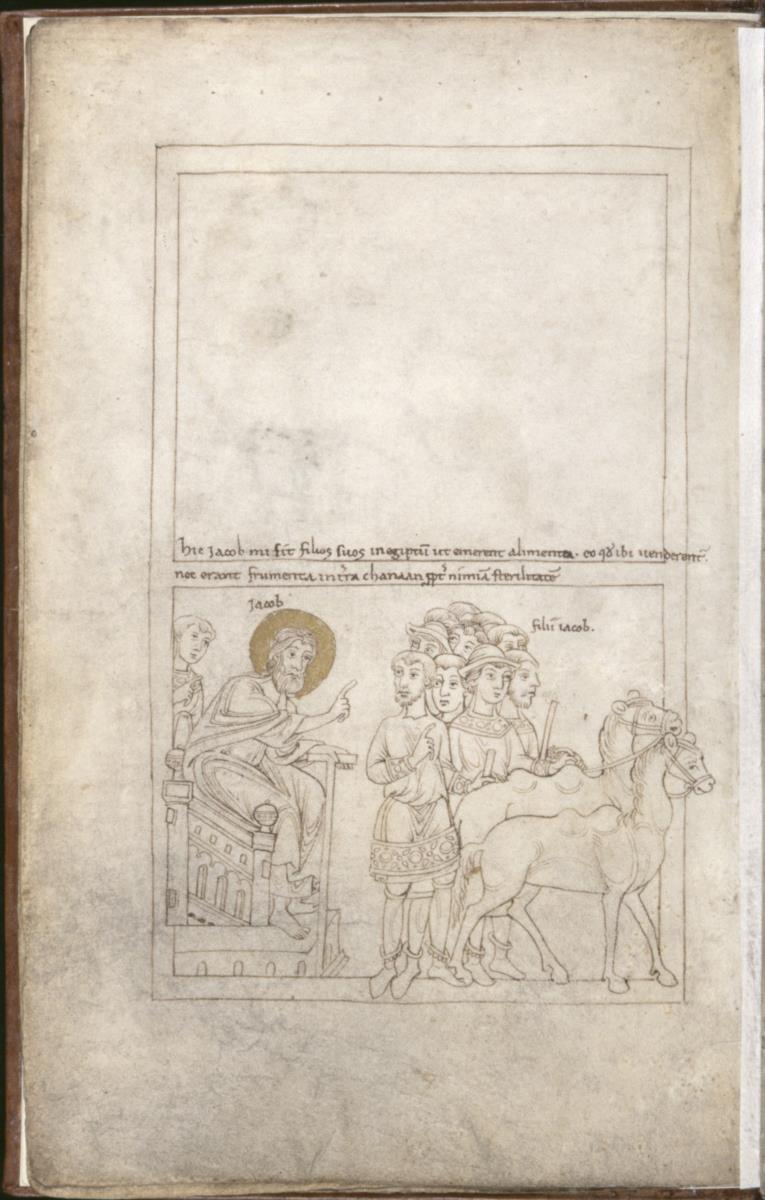 hic Jacob misit filios suos in egiptū ut emerent alimenta. eo qđ ibi uenderent̄.
nec erant frumenta in tr̄a chanaan ꝓpt̄ nimiā sterilitatē
Jacob
filii iacob.